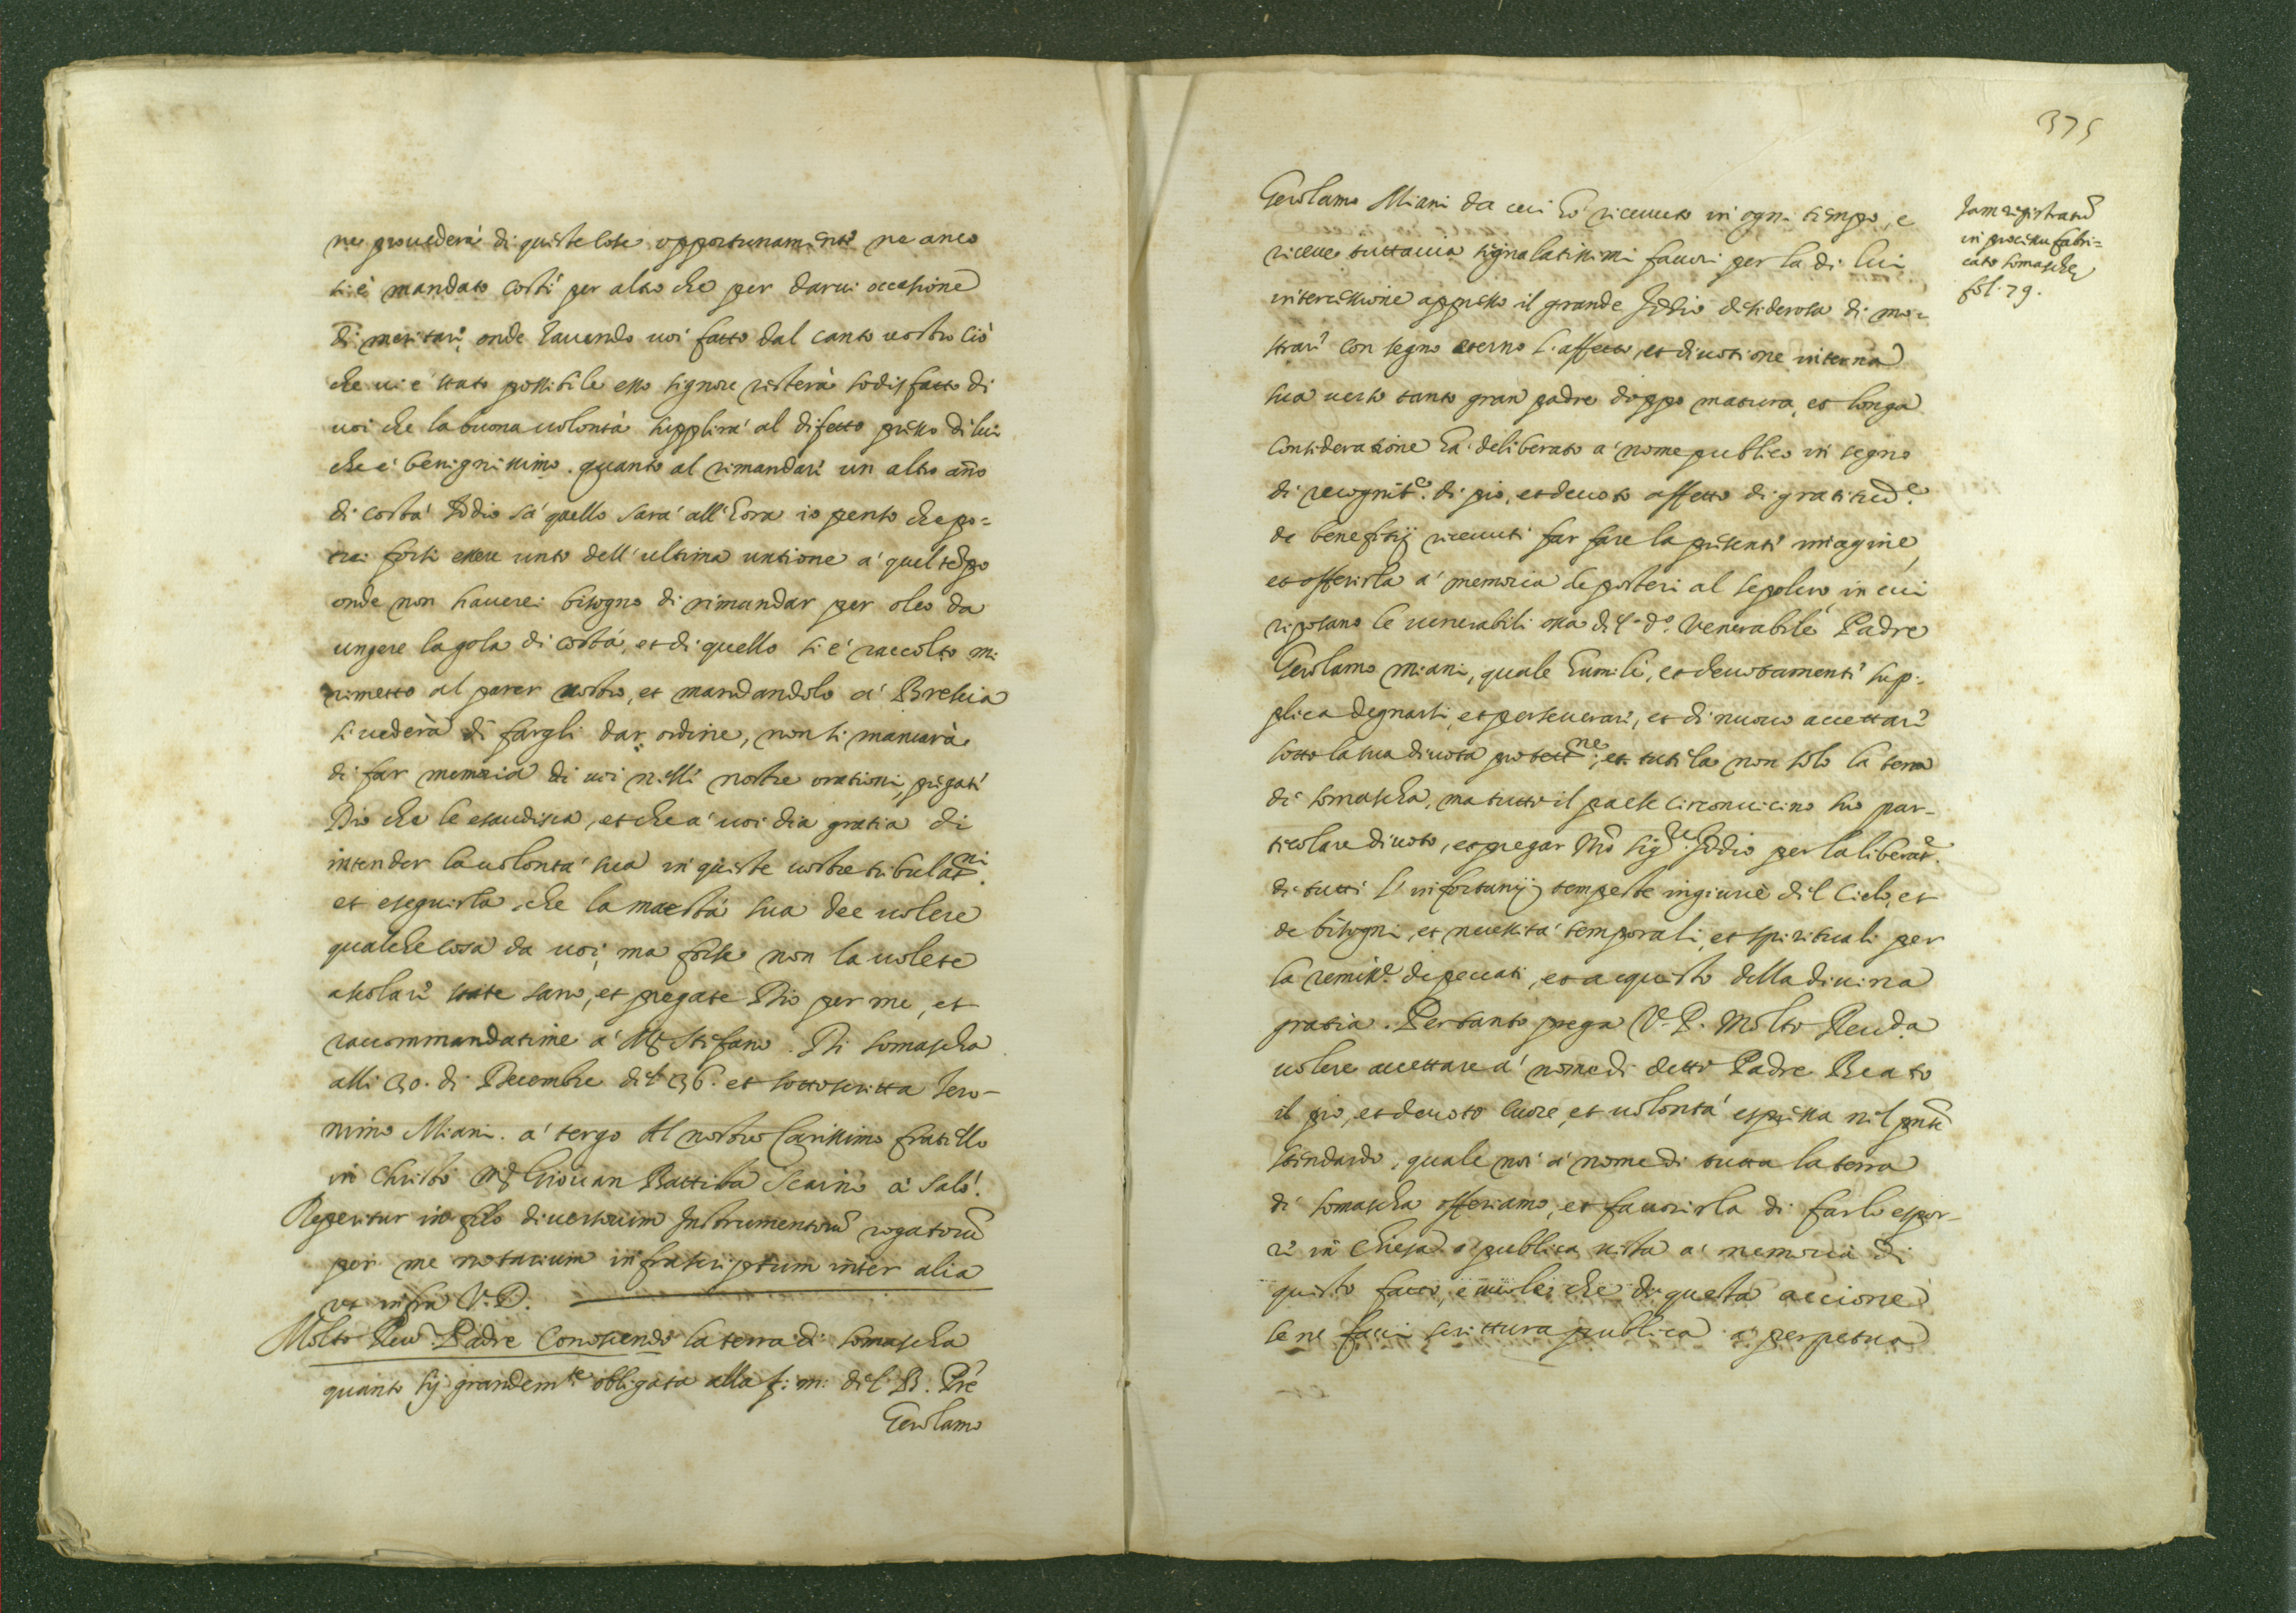 ne provederà di queste cose opportunamente ne anco
si è mandato costì per altro che per darvi occasione
di meritare, onde havendo voi fatto dal canto vostro ciò
che vi è stato possibile esso signore resterà sodisfatto di
voi che la buona volontà supplirà al difetto presso di lui
che è benignissimo. quanto al rimandare un altro año
di costà Iddio sà quello sarà all'hora io penso che po=
trei forsi essere unto dell'ultima untione a' quel tẽpo
onde non haverei bisogno di rimandar per oleo da
ungere la gola di costà, et di quello si è raccolto mi
rimetto al parer vostro, et mandandolo a' Bressia
si vederà di fargli dar ordine, non si mancarà
di far memoria di voi nelle nostre orationi, pregate
Dio che le esaudisca, et che a' voi dia gratia di
intender la volontà sua in queste vostre tribulat.ni
et eseguirla, che la maestà sua dee volere
qualche cosa da voi, ma forse non la volete
ascolare state sano, et pregate Dio per me, et
raccommandatime a' Mg Stefano. Di Somascha
alli 30. di Decembre del 36. et sottoscritta Iero-
nimo Miani. a' tergo Al nostro Carissimo fratello
in Christo Mg Giovan Battista Scaino a' Salò.
Reperitur in filo diversorum Instrumentorũ rogatorũ
per me notarium infrascriptum inter alia
ut infra V.D.
Molto Reu. Padre Conoscendo la terra di Somascha
quanto sij grandem.te obligata alla f: m: del B. Prẽ
Gerolamo
375
Gerolamo Miani da cui hà ricevuto in ogni tempo, e
riceve tuttavia signalatissimi favori per la di lui
intercessione appresso il grande Iddio desiderosa di mo=
strare con segno eterno l'affetto, et divotione interna
sua verso tanto gran padre doppo matura, et longa
consideratione hà deliberato a' nome publico in segno
di recognit.e di pio, et devoto affetto di gratitud.e
de benefitij ricevuti far fare la presente imagine,
et offerirla a' memoria de posteri al sepolcro in cui
riposano le venerabili ossa del d.o Venerabile Padre
Gerolamo Miani, quale humile, et devotamente sup-
plica degnarsi, et perseverare, et di nuovo accettare
sotto la sua divota protett.ne, et tutela non solo la terra
di Somascha, ma tutto il paese circonvicino suo par-
ticolare divoto, et pregar Nrõ Sig.re Iddio per la liberat.e
di tutti l'infortunij tempeste ingiurie del Cielo, et
de bisogni, et necessità temporali, et spirituali per
la remiss.e de peccati, et acquisto della divina
gratia. Pertanto prega V. P. Molto Reu.da
volere accettare a' nome di detto Padre Beato
il pio, et devoto cuore, et volontà espressa nel pñte
stendardo, quale noi a' nome di tutta la terra
di Somascha offeriamo, et favorirla di farlo espor-
re in Chiesa a' publica vista a' memoria di
questo fatto, e che di questa accione
se ne facci scrittura publica a' perpetua
Iam registratũ
in processu fabri=
cato Somaschæ
fol. 79.